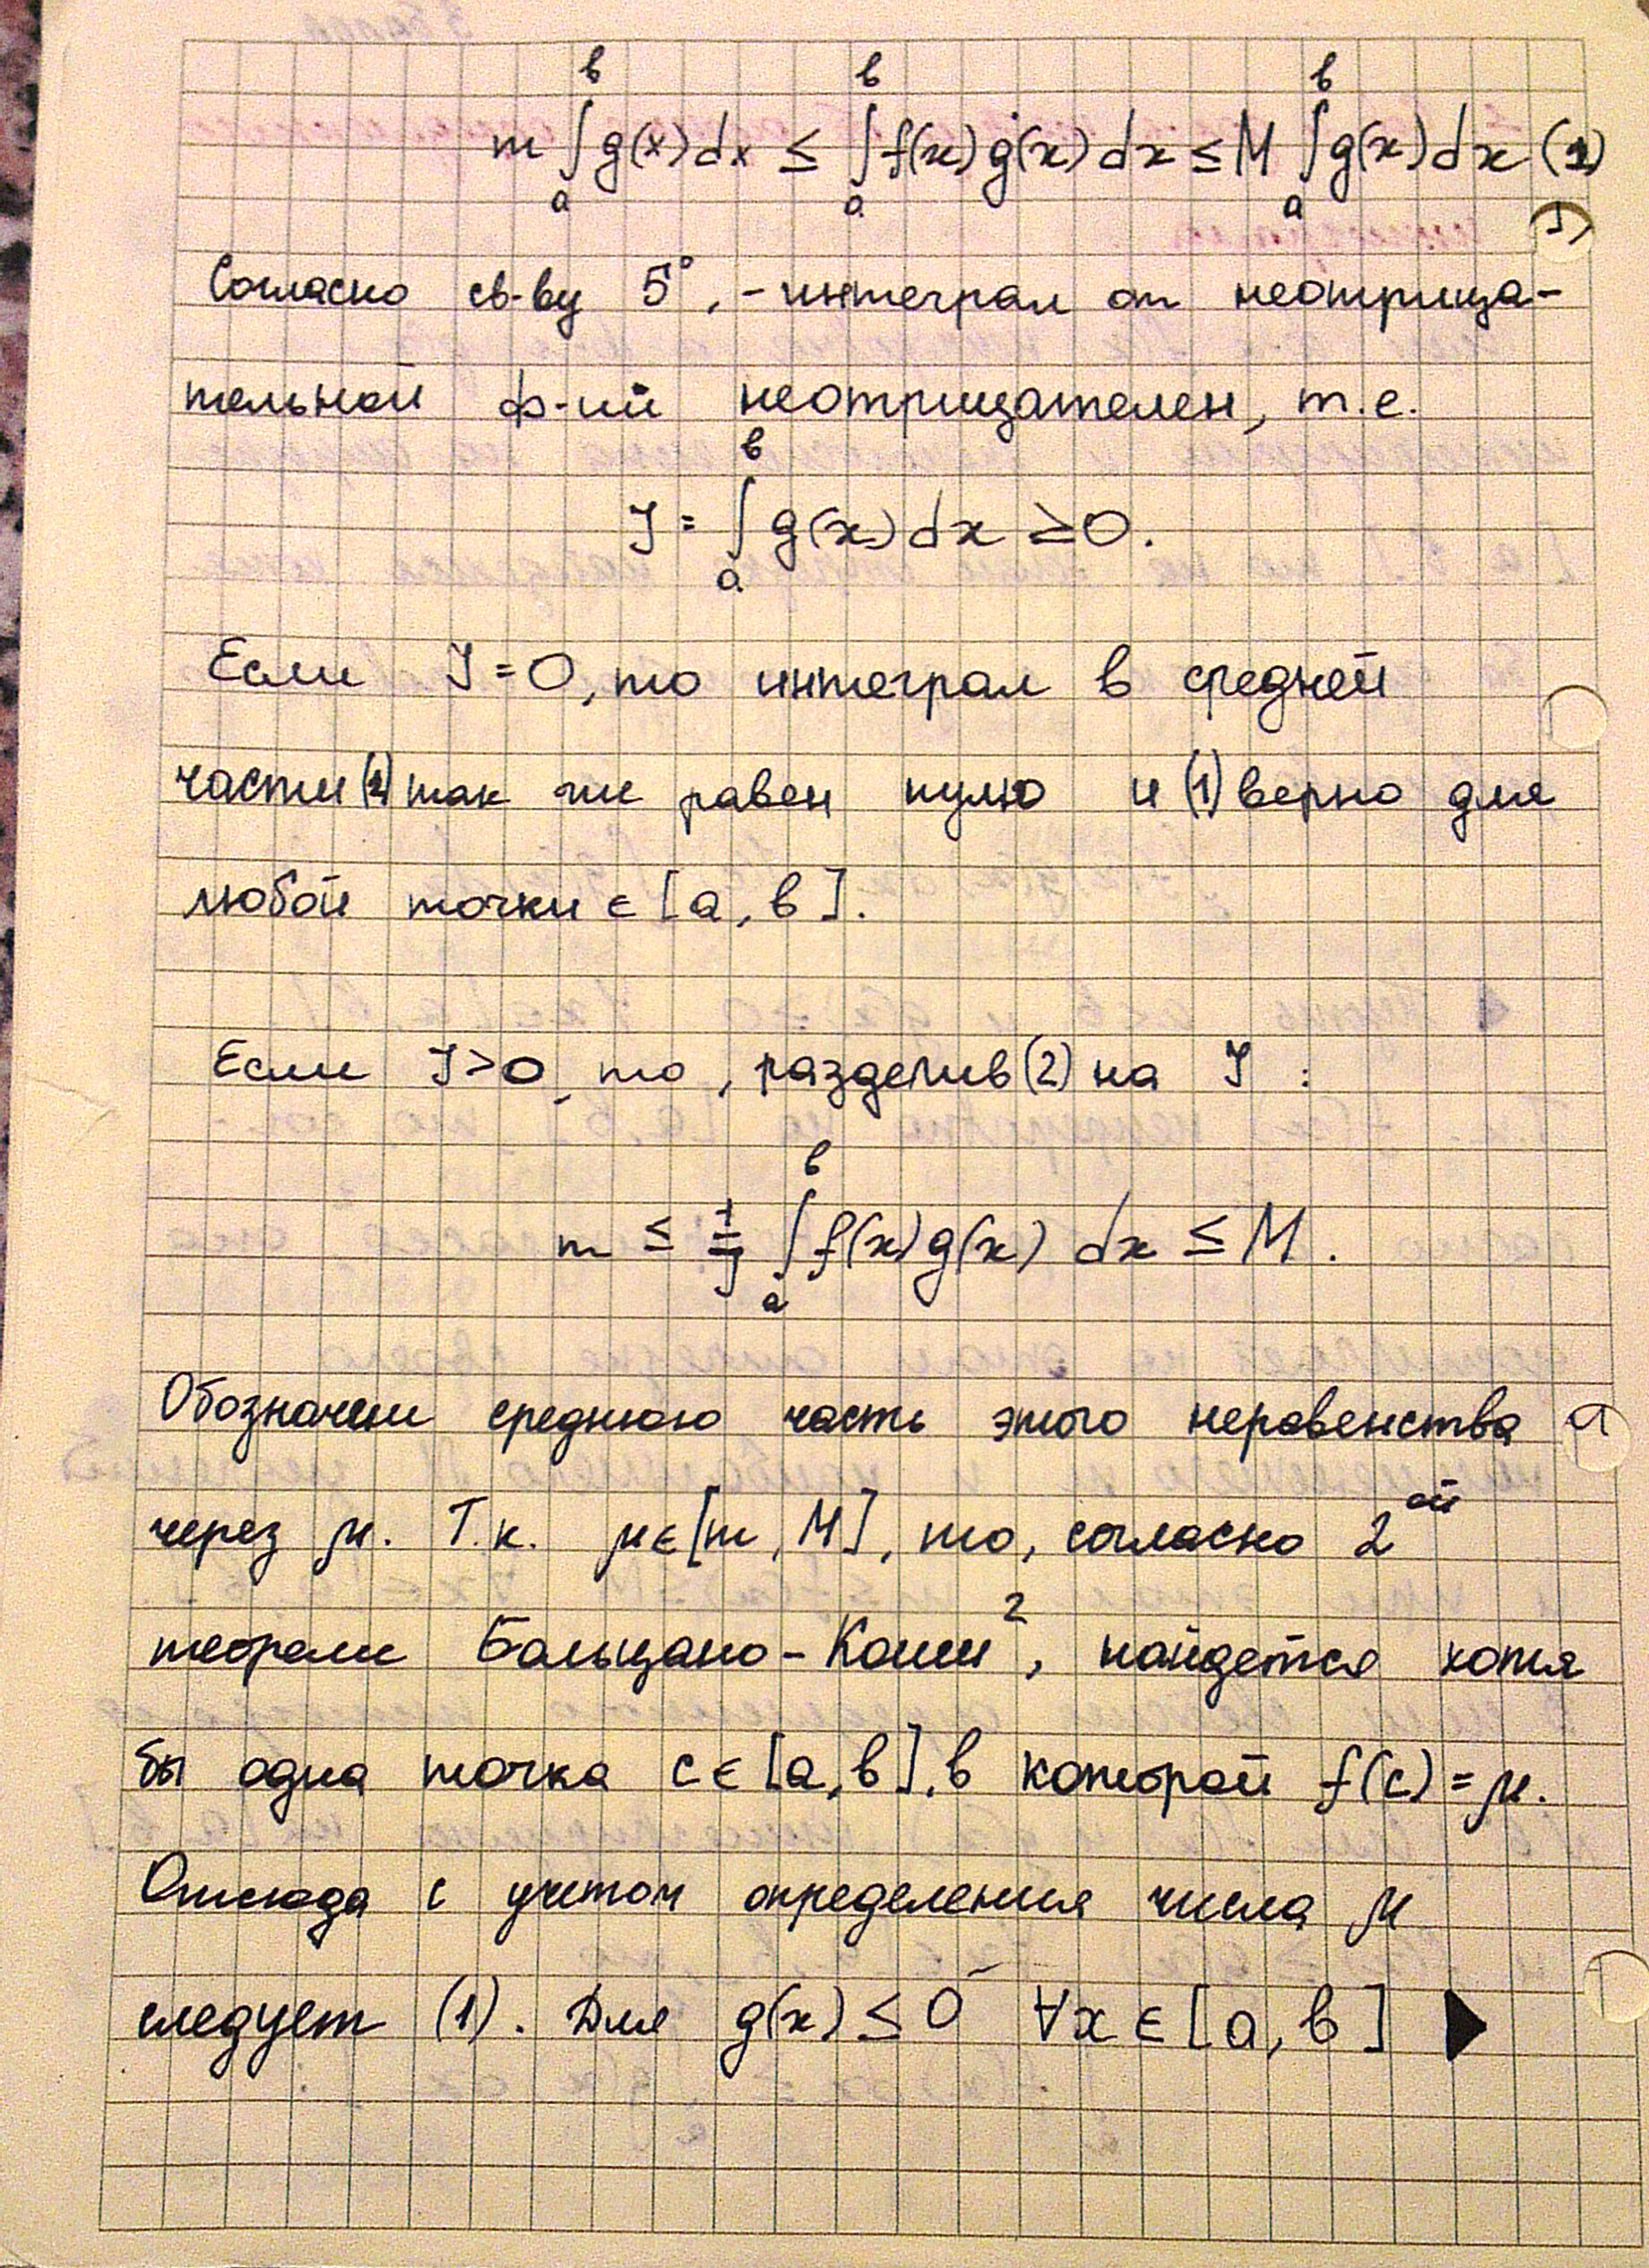 m ∫ₐᵇ g(x) dx ≤ ∫ₐᵇ f(x) g(x) dx ≤ M ∫ₐᵇ g(x) dx (2)
Согласно св-ву 5°, - интеграл от неотрица-
тельной ф-ий неотрицателен, т.е.
J = ∫ₐᵇ g(x) dx ≥ 0.
Если J = 0, то интеграл в средней
части (2) так же равен нулю и (1) верно для
любой точки ∈ [a, b].
Если J > 0, то, разделив (2) на J :
m ≤ 1/J ∫ₐᵇ f(x) g(x) dx ≤ M.
Обозначим среднюю часть этого неравенства
через μ. Т.к. μ ∈ [m, M], то, согласно 2ой
теореме Больцано-Коши², найдется хотя
бы одна точка c ∈ [a, b], в которой f(c) = μ.
Отсюда с учетом определения числа μ
следует (1). Для g(x) ≤ 0 ∀x ∈ [a, b] ▶